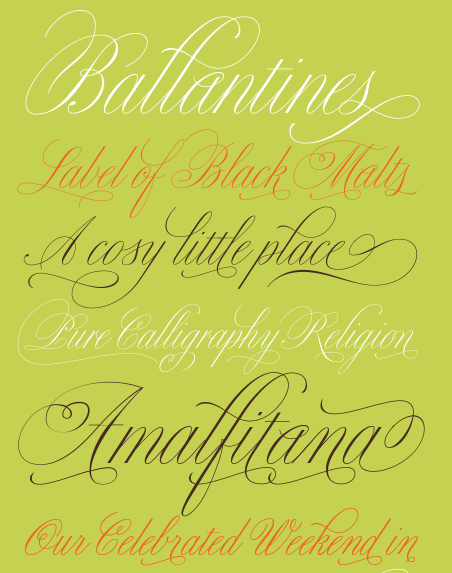 Ballantines
Label of Black Malts
A cosy little place
Pure Calligraphy Religion
Amalfitana
Our Celebrated Weekend in